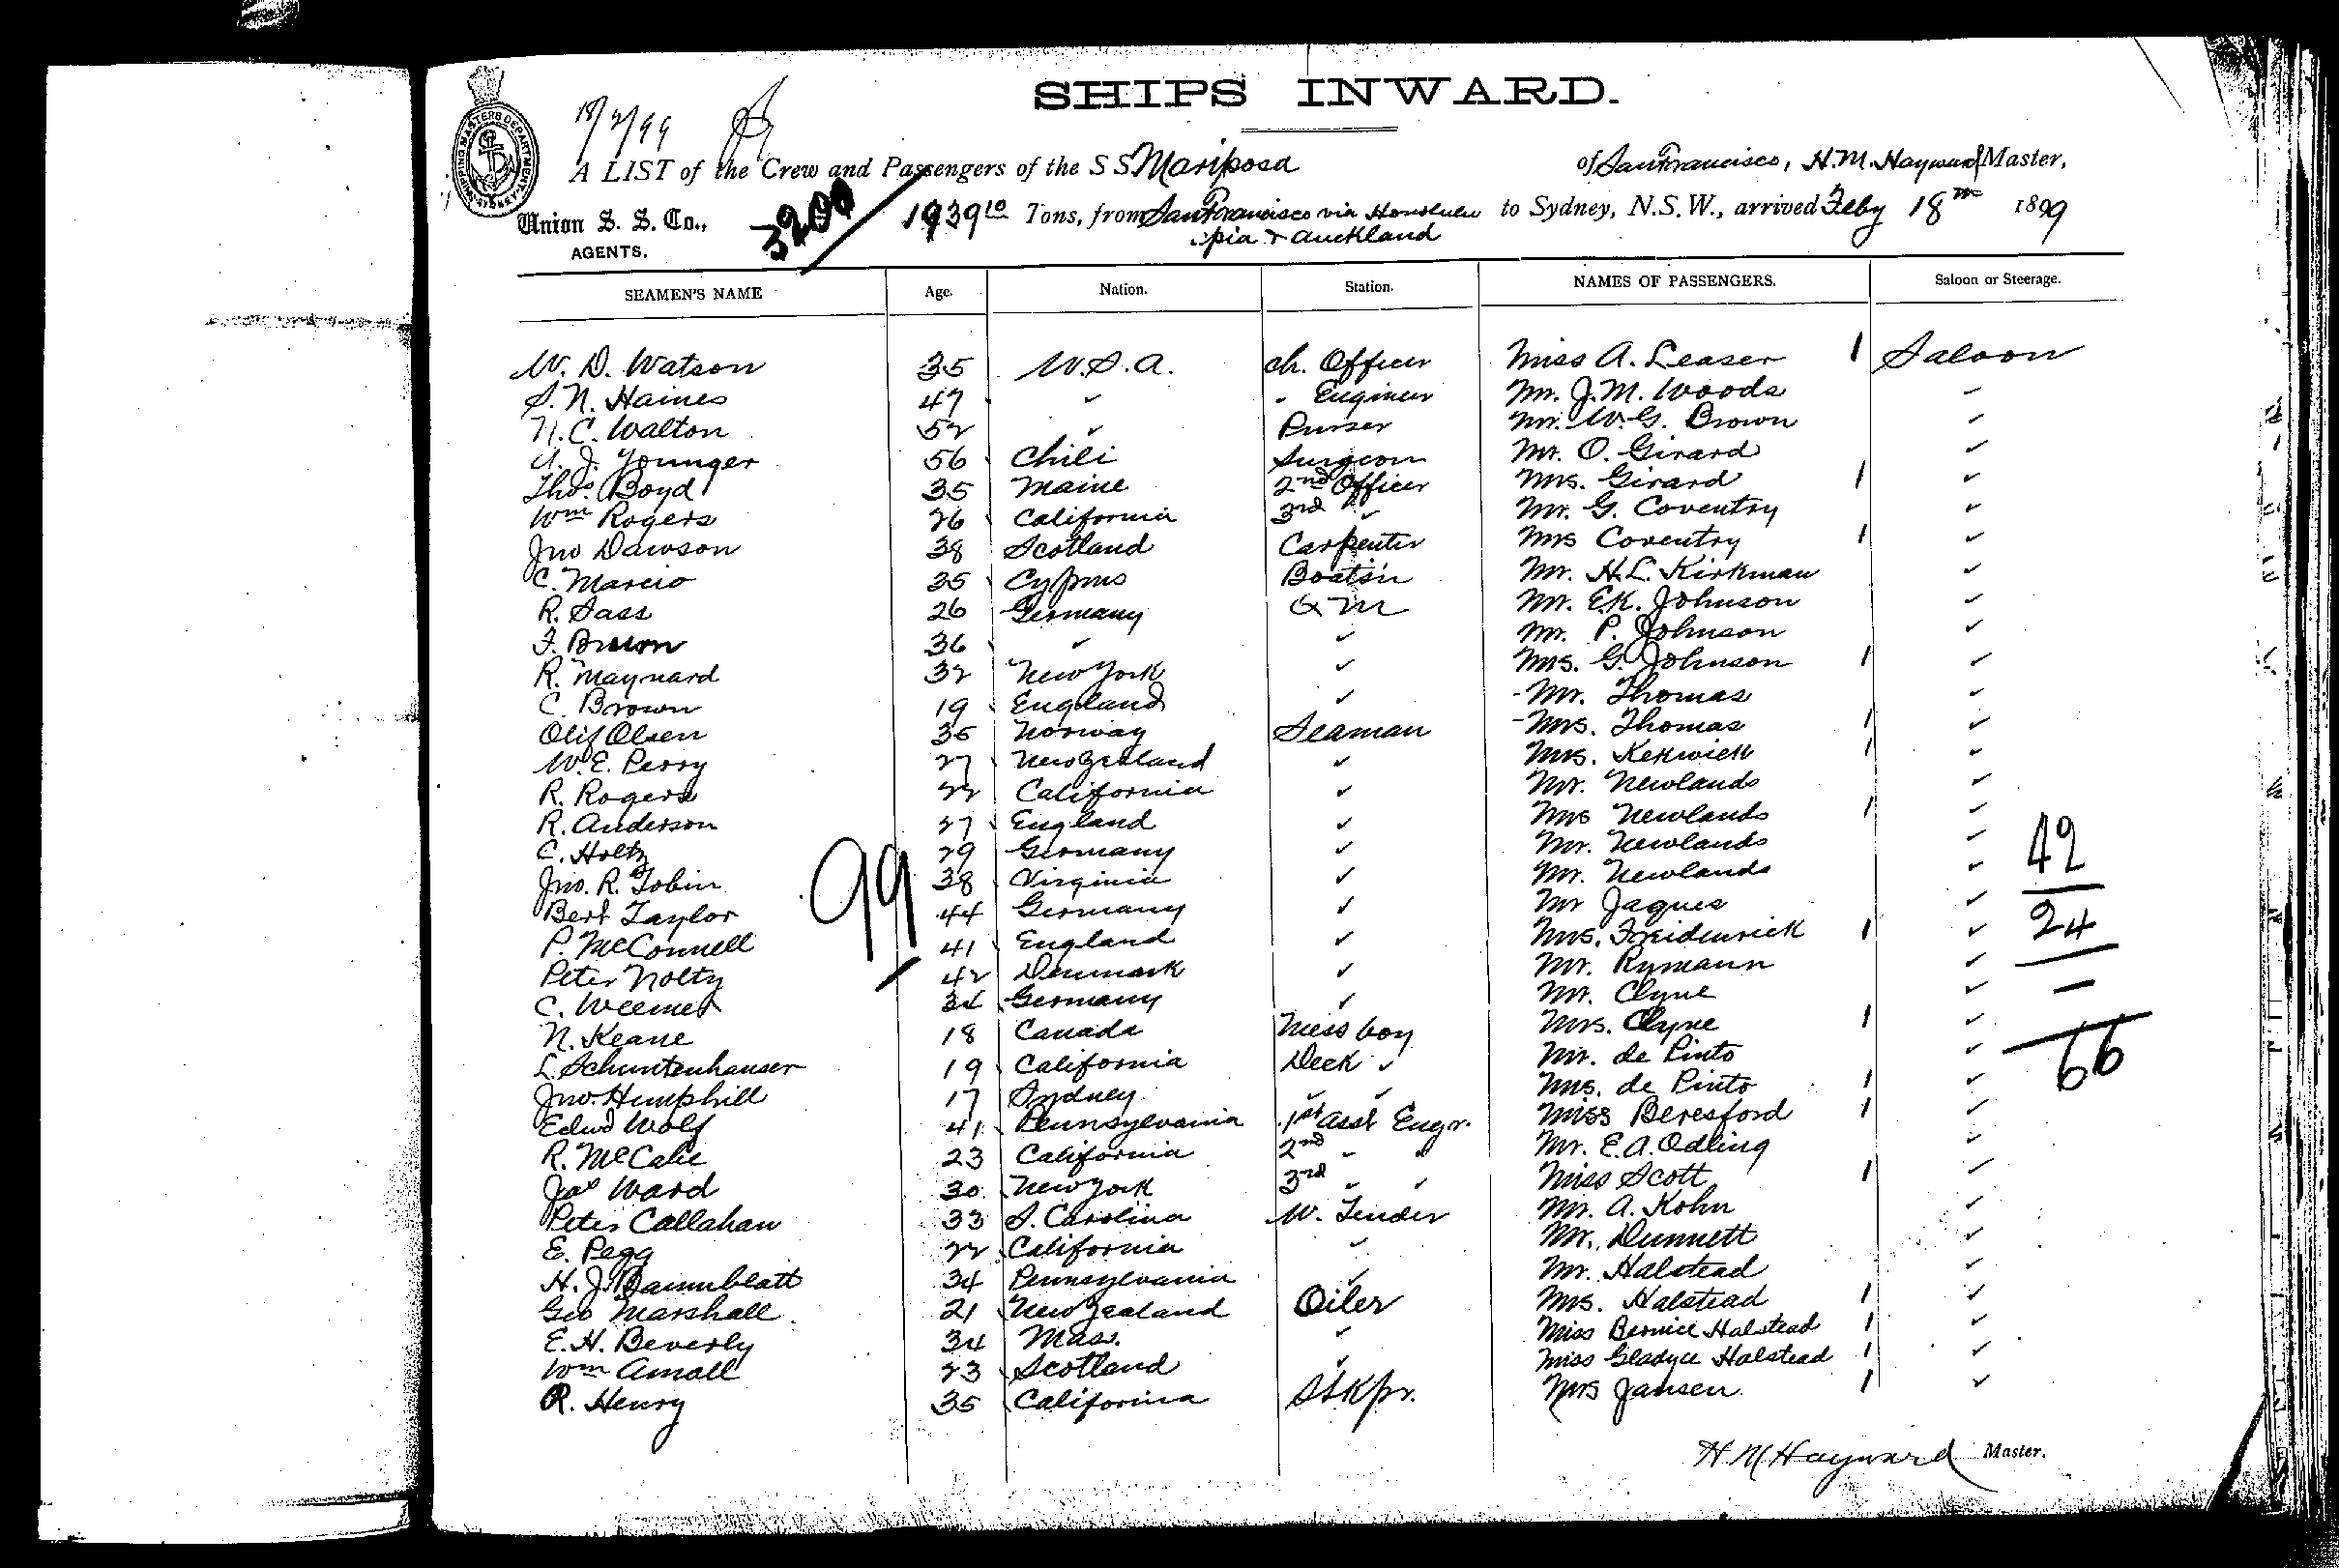 SHIPS INWARD.
18/2/99
SHIPPING MASTERS DEPARTMENT. SYDNEY
A LIST of the Crew and Passengers of the S S Mariposa of San Francisco, H.M. Hayward Master,
Union S. S. Co., 3200 1939 10 Tons, from San Francisco via Honolulu to Sydney, N.S.W., arrived Feby 18th 1899
AGENTS. pia & Auckland
SEAMEN'S NAME Age. Nation. Station. NAMES OF PASSENGERS. Saloon or Steerage.
W. D. Watson 35 U.S.A. Ch. Officer Miss A. Leaser 1 Saloon
S. N. Haines 47 " " Engineer Mr. J. M. Woods "
H. C. Walton 52 " Purser Mr. W. G. Brown "
A. J. Younger 56 Chili Surgeon Mr. O. Girard "
Thos. Boyd 35 Maine 2nd Officer Mrs. Girard 1 "
Wm Rogers 26 California 3rd " Mr. G. Coventry "
Jno Dawson 38 Scotland Carpenter Mrs Coventry 1 "
C. Marcio 35 Cyprus Boatsn Mr. H. L. Kirkman "
R. Sass 26 Germany Q M Mr. E.K. Johnson "
F. Brown 36 " " Mr. P. Johnson "
R. Maynard 32 New York " Mrs. G. Johnson 1 "
C. Brown 19 England " Mr. Thomas "
Olif Olsen 35 Norway Seaman Mrs. Thomas 1 "
W. E. Perry 27 New Zealand " Mrs. Kekwick 1 "
R. Rogers 22 California " Mr. Newlands "
R. Anderson 27 England " Mrs Newlands 1 "
C. Holtz 29 Germany " Mr. Newlands " 42
Jno. R. Tobin 99 38 Virginia " Mr. Newlands "
Bert Taylor 44 Germany " Mr Jaques "
P. McConnell 41 England " Mrs. Freidenrick 1 " 24
Peter Nolty 42 Denmark " Mr. Rymann "
C. Weemer 34 Germany " Mr. Clyne " —
N. Keane 18 Canada Mess boy Mrs. Clyne 1 "
L. Schuntenhauser 19 California Deck " Mr. de Pinto " 66
Jno. Humphill 17 Sydney " " Mrs. de Pinto 1 "
Edwd Wolf 41 Pennsylvania 1st Asst Engr. Miss Beresford 1 "
R. McCabe 23 California 2nd " " Mr. E. A. Odling "
Jas Ward 30 New York 3rd " " Miss Scott 1 "
Peter Callahan 33 S. Carolina W. Tender Mr. A. Kohn "
E. Pegg 22 California " Mr. Dunnett "
H. J. Baumblatt 34 Pennsylvania " Mr. Halstead "
Geo Marshall 21 New Zealand Oiler Mrs. Halstead 1 "
E. H. Beverly 34 Mass. " Miss Bernice Halstead 1 "
Wm Amall 23 Scotland " Miss Gladyce Halstead 1 "
R. Henry 35 California StKpr. Mrs Jansen 1 "
H M Hayward Master.